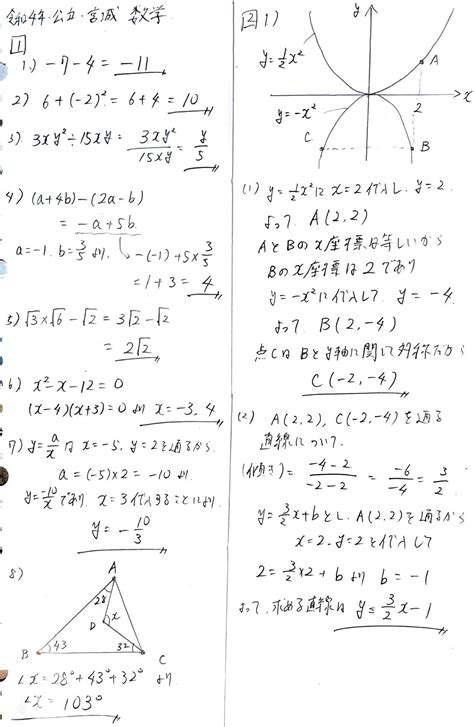 令和4年・公立・宮城 数学
1
1) -7-4 = -11
2) 6+(-2)² = 6+4 = 10
3) 3xy²÷15xy = 3xy²/15xy = y/5
4) (a+4b)-(2a-b)
= -a+5b
a=-1, b=3/5 より, -(-1)+5×3/5
=1+3=4
5) √3×√6-√2 = 3√2-√2
= 2√2
6) x²-x-12=0
(x-4)(x+3)=0 より x=-3, 4
7) y=a/x は x=-5, y=2を通るから
a=(-5)×2=-10 より
y=-10/x であり, x=3代入することにより
y=-10/3
8)
A
28
D
x
B
43
32
C
∠x=28°+43°+32° より
∠x=103°
2 1)
y
y=1/2x²
A
x
2
y=-x²
C
B
(1) y=1/2x²に x=2代入し, y=2.
よって, A(2,2)
AとBのx座標は等しいから
Bのx座標は2であり
y=-x²に代入して, y=-4.
よって, B(2,-4)
点CはBとy軸に関して対称だから
C(-2,-4)
(2) A(2,2), C(-2,-4)を通る
直線について.
(傾き)= -4-2/-2-2 = -6/-4 = 3/2
y=3/2x+bとし, A(2,2)を通るから
x=2, y=2を代入して
2=3/2×2+bより b=-1
よって, 求める直線は y=3/2x-1